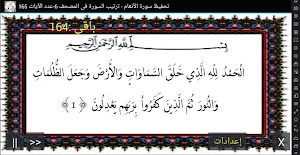 تحفيظ سورة الأنعام - ترتيب السورة فى المصحف 6-عدد الآيات 165
باقى :164
بِسْمِ اللَّهِ الرَّحْمَنِ الرَّحِيمِ
الْحَمْدُ لِلَّهِ الَّذِي خَلَقَ السَّمَاوَاتِ وَالْأَرْضَ وَجَعَلَ الظُّلُمَاتِ
وَالنُّورَ ثُمَّ الَّذِينَ كَفَرُوا بِرَبِّهِمْ يَعْدِلُونَ ﴿ 1 ﴾
|| >> إعدادات